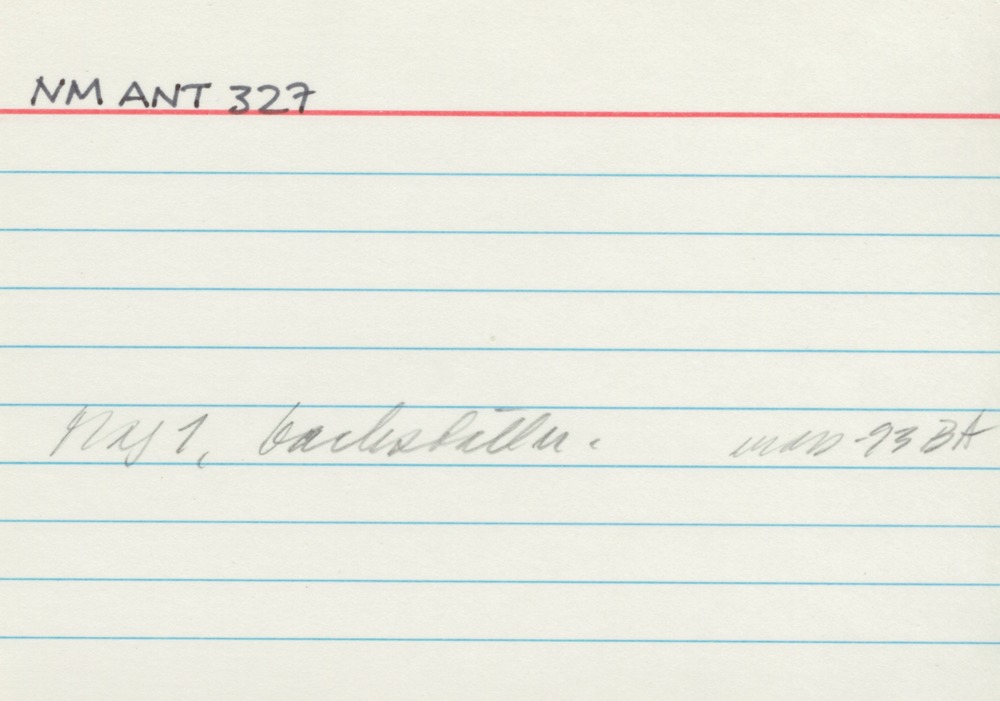 NM ANT 327
Mag 1, backställn. mars -93 BA